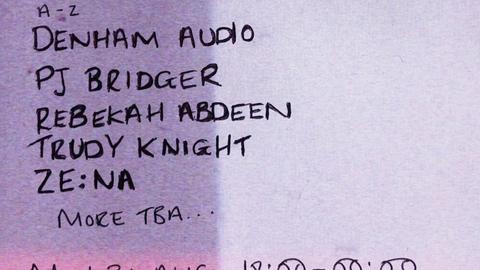 A-Z
DENHAM AUDIO
PJ BRIDGER
REBEKAH ABDEEN
TRUDY KNIGHT
ZE:NA
MORE TBA...
18:00-00:00